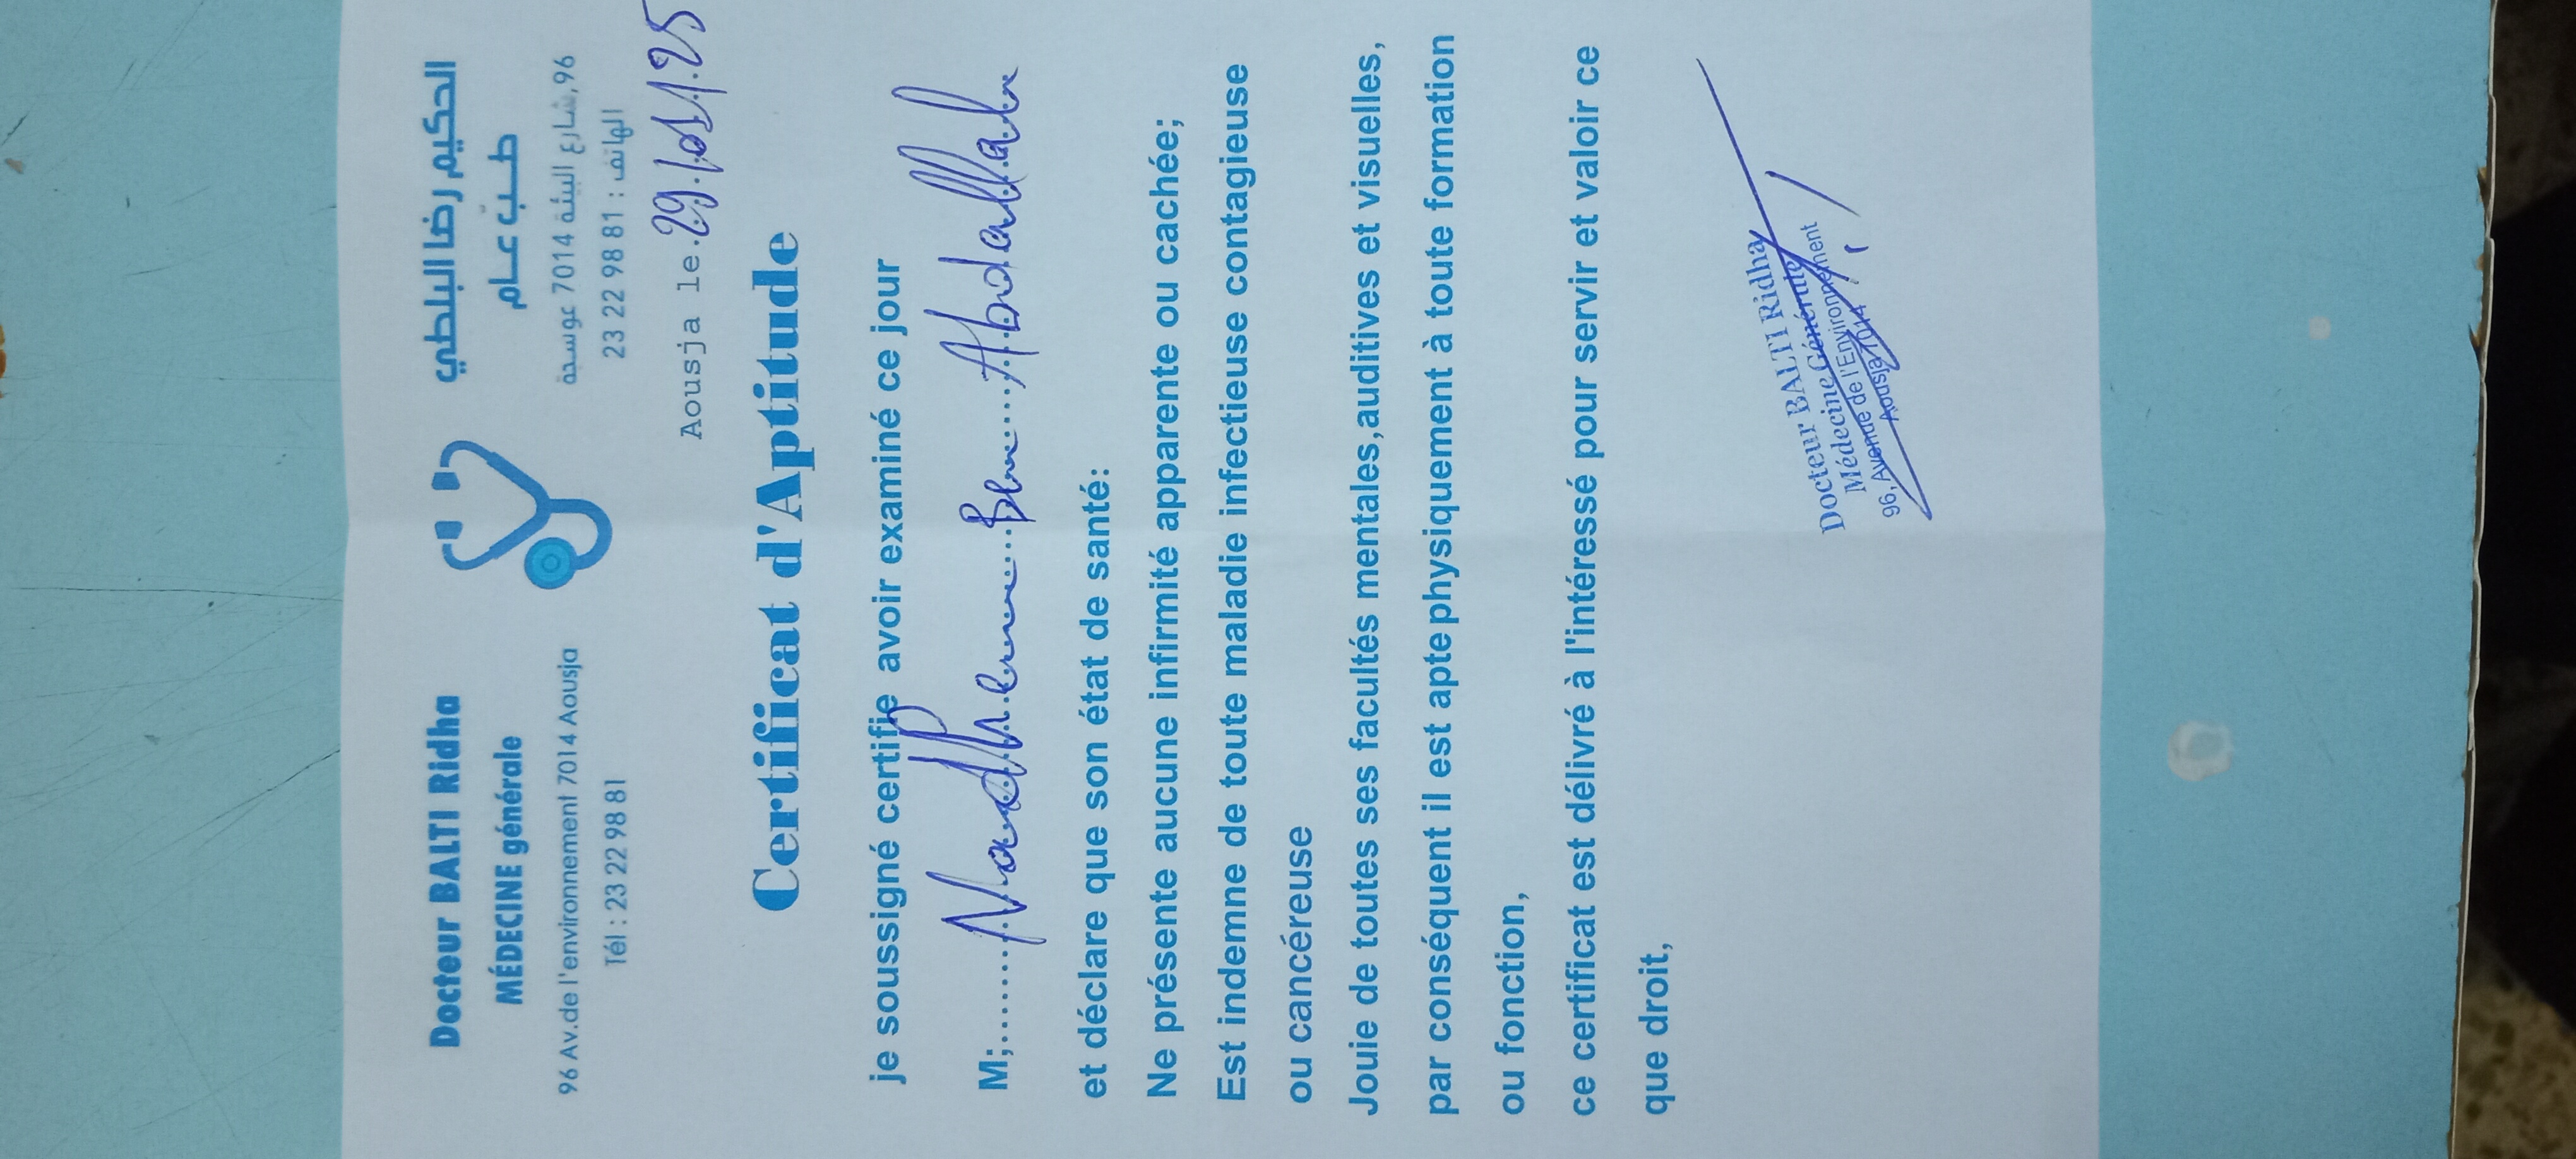 Docteur BALTI Ridha
MÉDECINE générale
96 Av.de l'environnement 7014 Aousja
Tél : 23 22 98 81
الحكيم رضا البلطي
طـبّ عـام
96,شارع البيئة 7014 عوسجة
الهاتف : 23 22 98 81
Aousja le.29/05/25
Certificat d'Aptitude
je soussigné certifie avoir examiné ce jour
M;.......Nadhem Ben Abdallah
et déclare que son état de santé:
Ne présente aucune infirmité apparente ou cachée;
Est indemne de toute maladie infectieuse contagieuse
ou cancéreuse
Jouie de toutes ses facultés mentales,auditives et visuelles,
par conséquent il est apte physiquement à toute formation
ou fonction,
ce certificat est délivré à l'intéressé pour servir et valoir ce
que droit,
Docteur BALTI Ridha
Médecine Générale
96, Avenue de l'Environnement
Aousja 7014